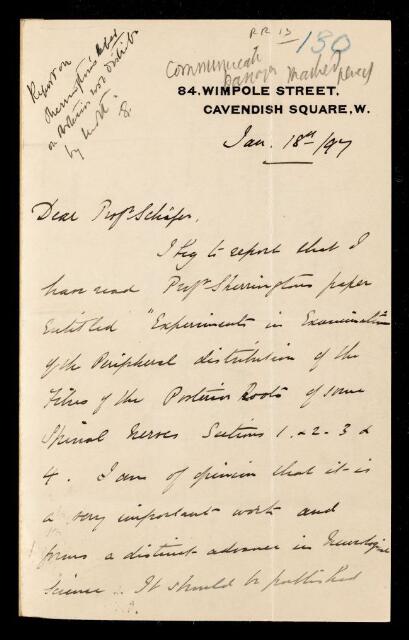 RR 13
130
Report on
Sherrington's
on Posterior root distribution
by Mott
S.
Communicate
marked
84, WIMPOLE STREET,
CAVENDISH SQUARE, W.
Jan. 18th/97
Dear Profr Schäfer,
I beg to report that I
have read Profr Sherringtons paper
Entitled "Experiments in Examination
of the Peripheral distribution of the
Fibres of the Posterior Roots of some
Spinal Nerves Sections 1. 2. 3 &
4. I am of opinion that it is
a very important work and
forms a distinct advance in Neurological
Science. It should be published